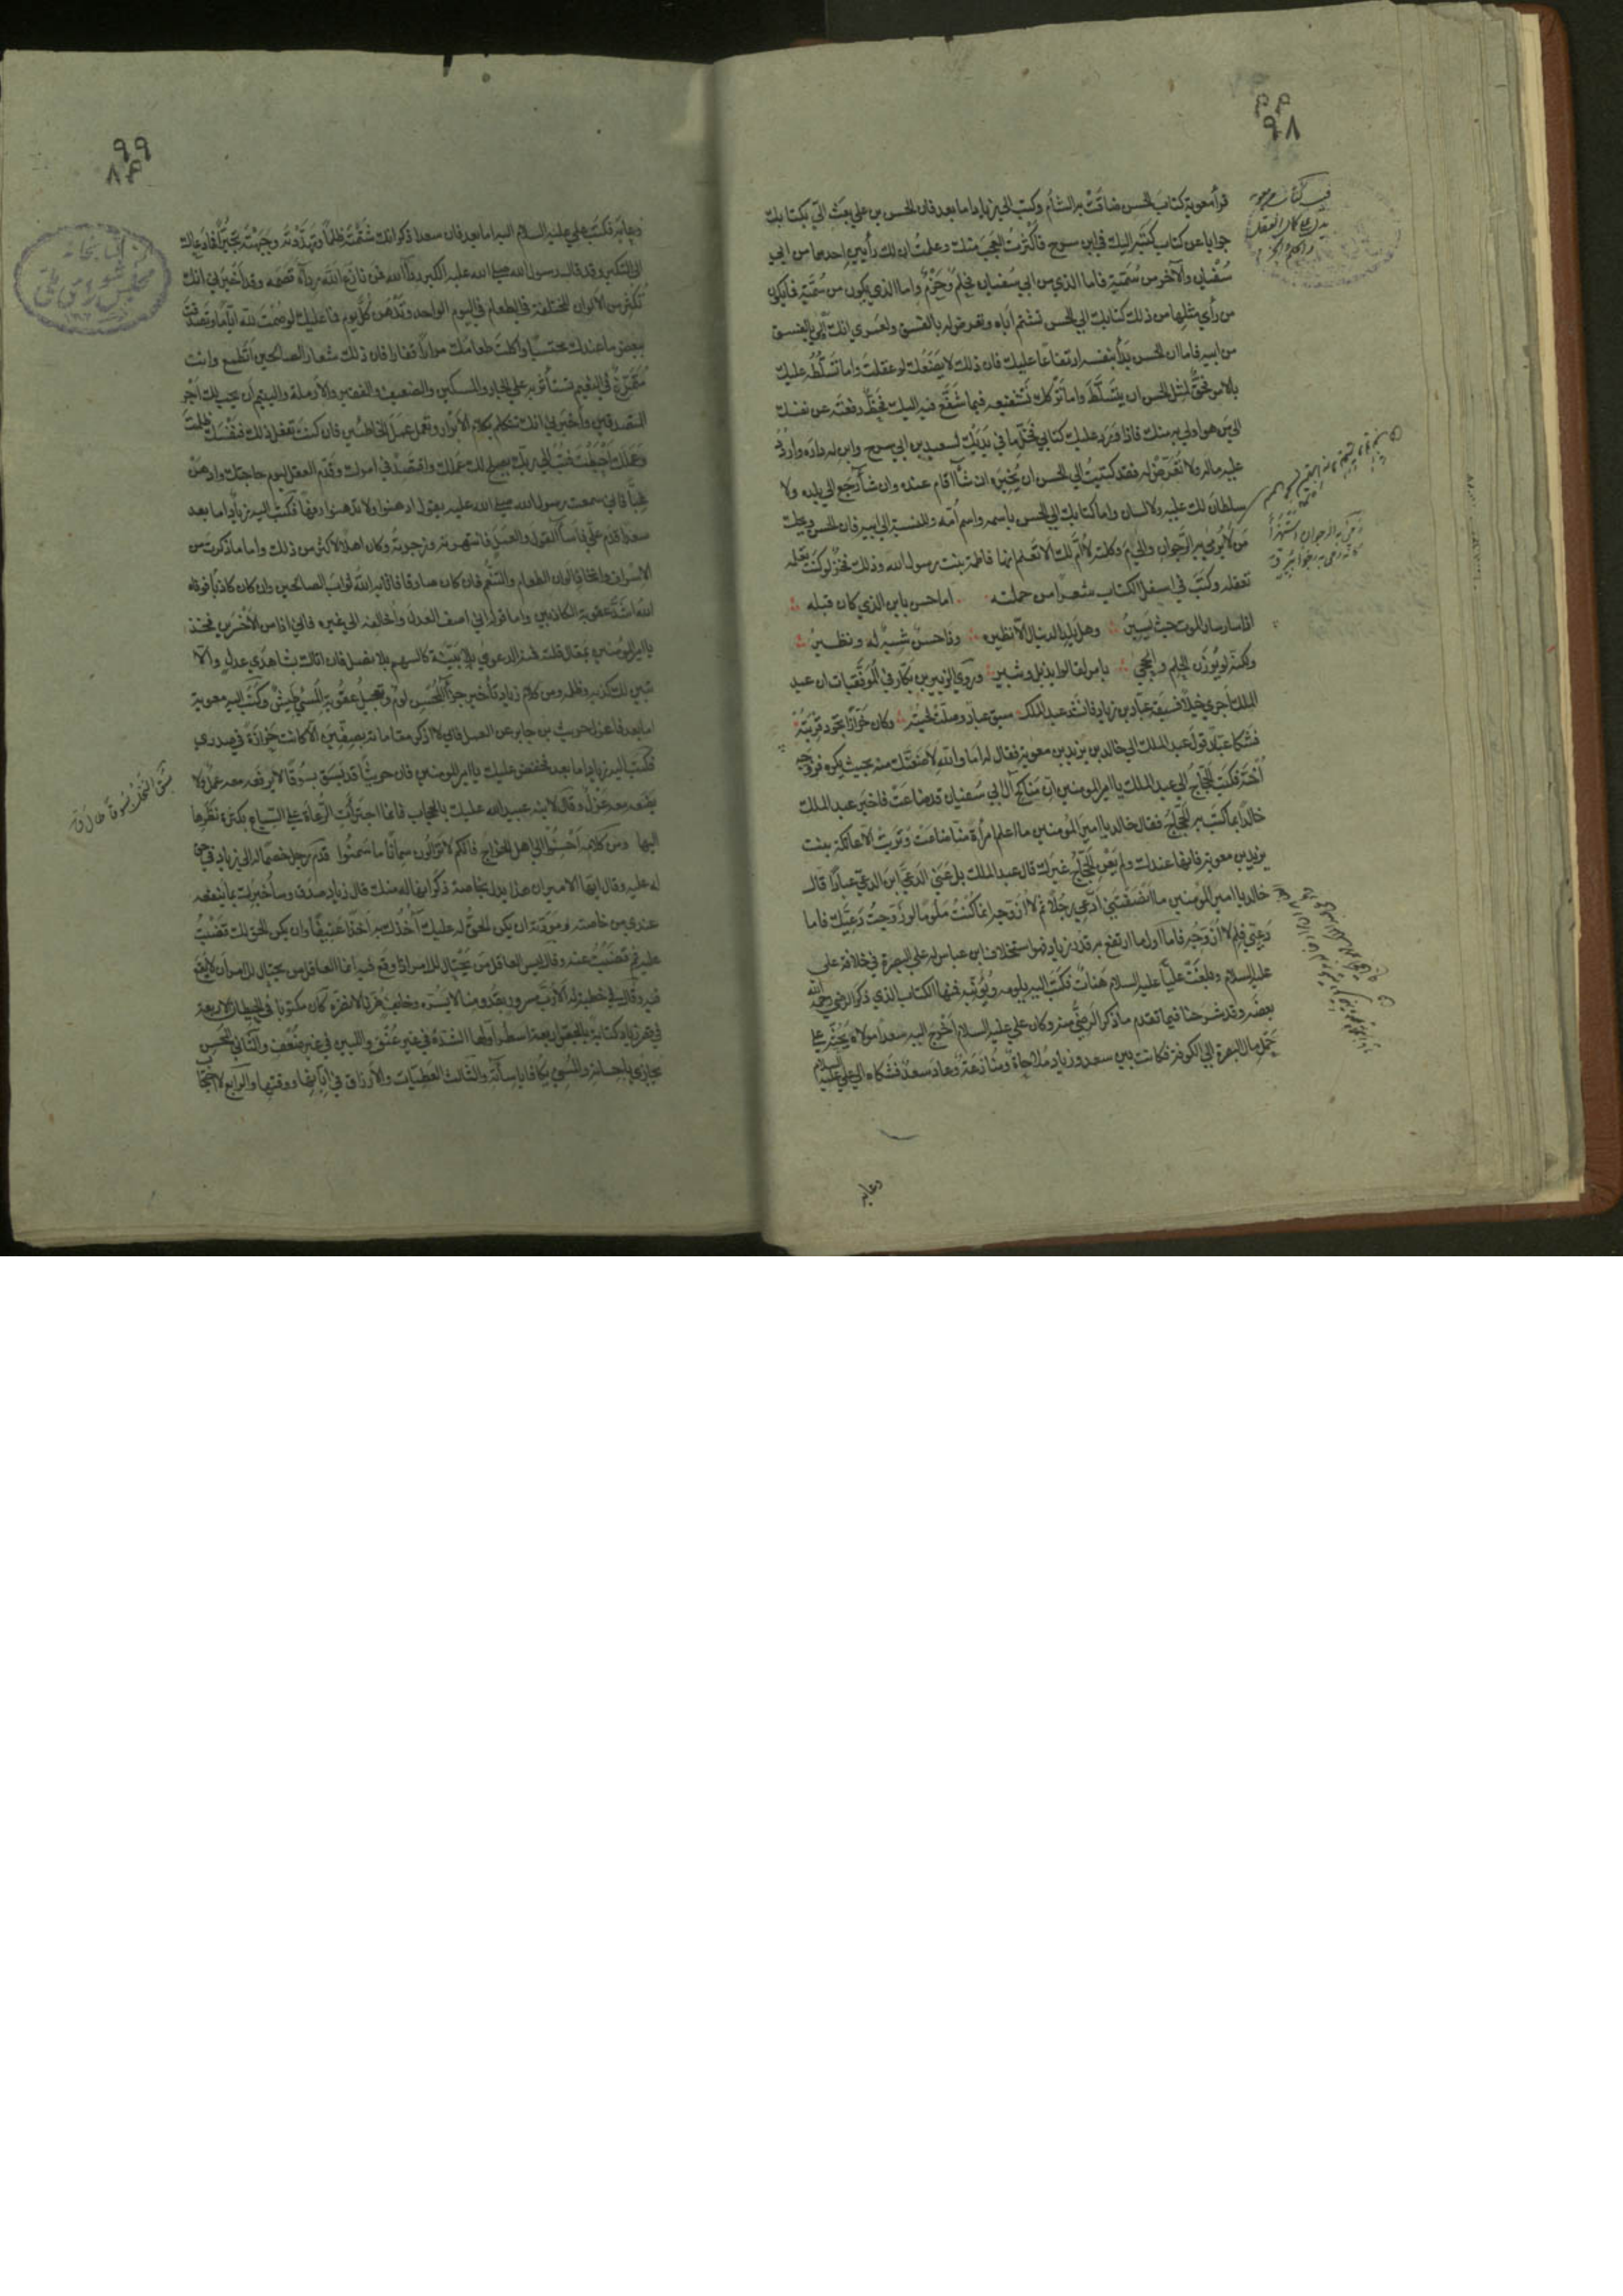 ٩٨
قرأ معوية كتاب الحسن ضاقت به الشأم وكتب الى زياد اما بعد فان الحسن بن علي بعث الي بكتابك
جوابا عن كتاب كتبه اليك في ابن سرح فاكثرت العجب منك وعلمت ان لك رأيين احدهما من ابي
سفيان والآخر من سمية فاما الذي من ابي سفيان فحلم وحزم واما الذي يكون من سمية فما يكون
من رأي مثلها من ذلك كتابك الى الحسن تشتم اباه وتعرض له بالفسق ولعمري انك اولى بالفسق
من ابيه فاما ان الحسن بدأ بنفسه ارتفاعا عليك فان ذلك لا يضعك لو عقلت واما تسلطه عليك
بالامر فحق لمثل الحسن ان يتسلط واما تركك تشفيعه فيما شفع فيه اليك فحظ دفعته عن نفسك
الى من هو اولى به منك فاذا ورد عليك كتابي فخل ما في يديك لسعيد بن ابي سرح وابن له داره واردد
عليه ماله ولا تعرض له فقد كتبت الى الحسن ان يخيره ان شاء اقام عنده وان شاء رجع الى بلده ولا
سلطان لك عليه ولا لسان واما كتابك الى الحسن باسمه واسم امه ولا تنسبه الى ابيه فان الحسن ويحك
من لا يرمى به الرجوان والى اي ام وكلته لا ام لك اما تعلم انها فاطمة بنت رسول الله وذلك افخر له لو كنت تعلمه
وتعقله وكتب في اسفل الكتاب شعرا من جملته اما حسن فابن الذي كان قبله
اذا سار سار الموت حيث يسير وهل يلد الرئبال الا نظيره وذا حسن شبه له ونظير
ولكنه لو يوزن الحلم والحجى بامر لقالوا يذبل وثبير وروى الزبير بن بكار في الموفقيات ان عبد
الملك اجرى خيلا فسبقه عباد بن زياد فانشد عبد الملك سبق عباد وصلت لحيته وكان خرازا تجود قربته
فشكا عباد قول عبد الملك الى خالد بن يزيد بن معوية فقال له اما والله لاضعنك منه بحيث يكره فزوجه
اخته فكتب الحجاج الى عبد الملك يا امير المومنين ان مناكح آل ابي سفيان قد ضاعت فاخبر عبد الملك
خالدا بما كتب به الحجاج فقال خالد يا امير المومنين ما اعلم امرأة منا ضاعت ونزت الا عاتكة بنت
يزيد بن معوية فانها عندك ولم يعن الحجاج غيرك قال عبد الملك بل عنى الدعي ابن الدعي عبادا قال
خالد يا امير المومنين ما انصفتني ادعي رجلا ثم لا ازوجه انما كنت ملوما لو زوجت دعيك فاما
دعيي فلم لا ازوجه فاما اول ما ارتفع به قدر زياد فهو استخلاف ابن عباس له على البصرة في خلافة علي
عليه السلام وبلغت عليا عليه السلام هنات فكتب اليه يلومه ويؤنبه فمنها الكتاب الذي ذكر الرضي رحمه الله
بعضه وقد شرحنا فيما تقدم ما ذكر الرضي منه وكان علي عليه السلام اخرج اليه سعدا مولاه يحثه على
حمل مال البصرة الى الكوفة فكانت بين سعد وزياد ملاحاة ومنازعة وعاد سعد فشكاه الى علي عليه السلام
وعابه
٩٩
وعابه فكتب علي عليه السلام اليه اما بعد فان سعدا ذكر انك شتمته ظلما وتهددته وجبهته تجبرا فما دعاك
الى التكبر وقد قال رسول الله صلى الله عليه الكبر رداء الله فمن نازع الله رداءه قصمه وقد اخبرني انك
تكثر من الالوان المختلفة في الطعام في اليوم الواحد وتدهن كل يوم فما عليك لو صمت لله اياما وتصدقت
ببعض ما عندك محتسبا واكلت طعامك مرارا قفارا فان ذلك شعار الصالحين اتطمع وانت
متمرغ في النعيم تستأثر به على الجار والمسكين والضعيف والفقير والارملة واليتيم ان يحسب لك اجر
المتصدقين واخبرني انك تتكلم بكلام الابرار وتعمل عمل الخاطئين فان كنت تفعل ذلك فنفسك ظلمت
وعملك احبطت فتب الى ربك يصلح لك عملك واقتصد في امرك وقدم الفضل ليوم حاجتك وادهن
غبا فاني سمعت رسول الله صلى الله عليه يقول ادهنوا غبا ولا تدهنوا رفها فكتب اليه زياد اما بعد
سعدا قدم علي فاساء القول والعمل فانتهرته وزجرته وكان اهلا لاكثر من ذلك واما ما ذكرت من
الاسراف واتخاذ الوان الطعام والتنعم فان كان صادقا فاثابه الله ثواب الصالحين وان كان كاذبا فوقاه
الله اشد عقوبة الكاذبين واما قوله اني اصف العدل واخالفه الى غيره فاني اذا من الاخسرين فخذ
يا امير المومنين بمقال قلته في مقام قمته الدعوى بلا بينة كالسهم بلا نصل فان اتاك بشاهدي عدل والا
تبين لك كذبه وظلمه ومن كلام زياد تأخير جزاء المحسن لوم وتعجيل عقوبة المسيء طيش وكتب اليه معوية
اما بعد فاعزل حريث بن جابر عن العمل فاني لا اذكر مقاماته بصفين الا كانت حزازة في صدري
فكتب اليه زياد اما بعد فخفض عليك يا امير المومنين فان حريثا قد بسق بسوقا لا يرفعه معه عمل ولا
يضعه معه عزل وقال لابنه عبيد الله عليك بالحجاب فانما اجترأت الرعاة على السباع بكثرة نظرها
اليها ومن كلامه احسنوا الى اهل الخراج فانكم لا تزالون سمانا ما سمنوا قدم رجل خصما له الى زياد في حق
له عليه وقال ايها الامير ان هذا يدل بخاصة ذكر انها له منك قال زياد صدق وساخبرك بما ينفعه
عندي من خاصته ومودته ان يكن الحق له عليك آخذك به اخذا عنيفا وان يكن الحق لك قضيت
عليه ثم قضيت عنه وقال ليس العاقل من يحتال للامر اذا وقع فيه انما العاقل من يحتال للامر ان لا يقع
فيه وقال في خطبة له الا رب مسرور بقدومنا لا نسره وخائف ضرنا لا نضره كان مكتوبا في الحيطان الاربعة
في قصر زياد كتابة بالجص اربعة اسطر اولها الشدة في غير عنف واللين في غير ضعف والثاني المحسن
يجازى باحسانه والمسيء يكافا باساءته والثالث العطيات والارزاق في ابانها ووقتها والرابع لا احتجاب
بسق النخل بسوقا طال
كتابخانه
مجلس شورای ملی